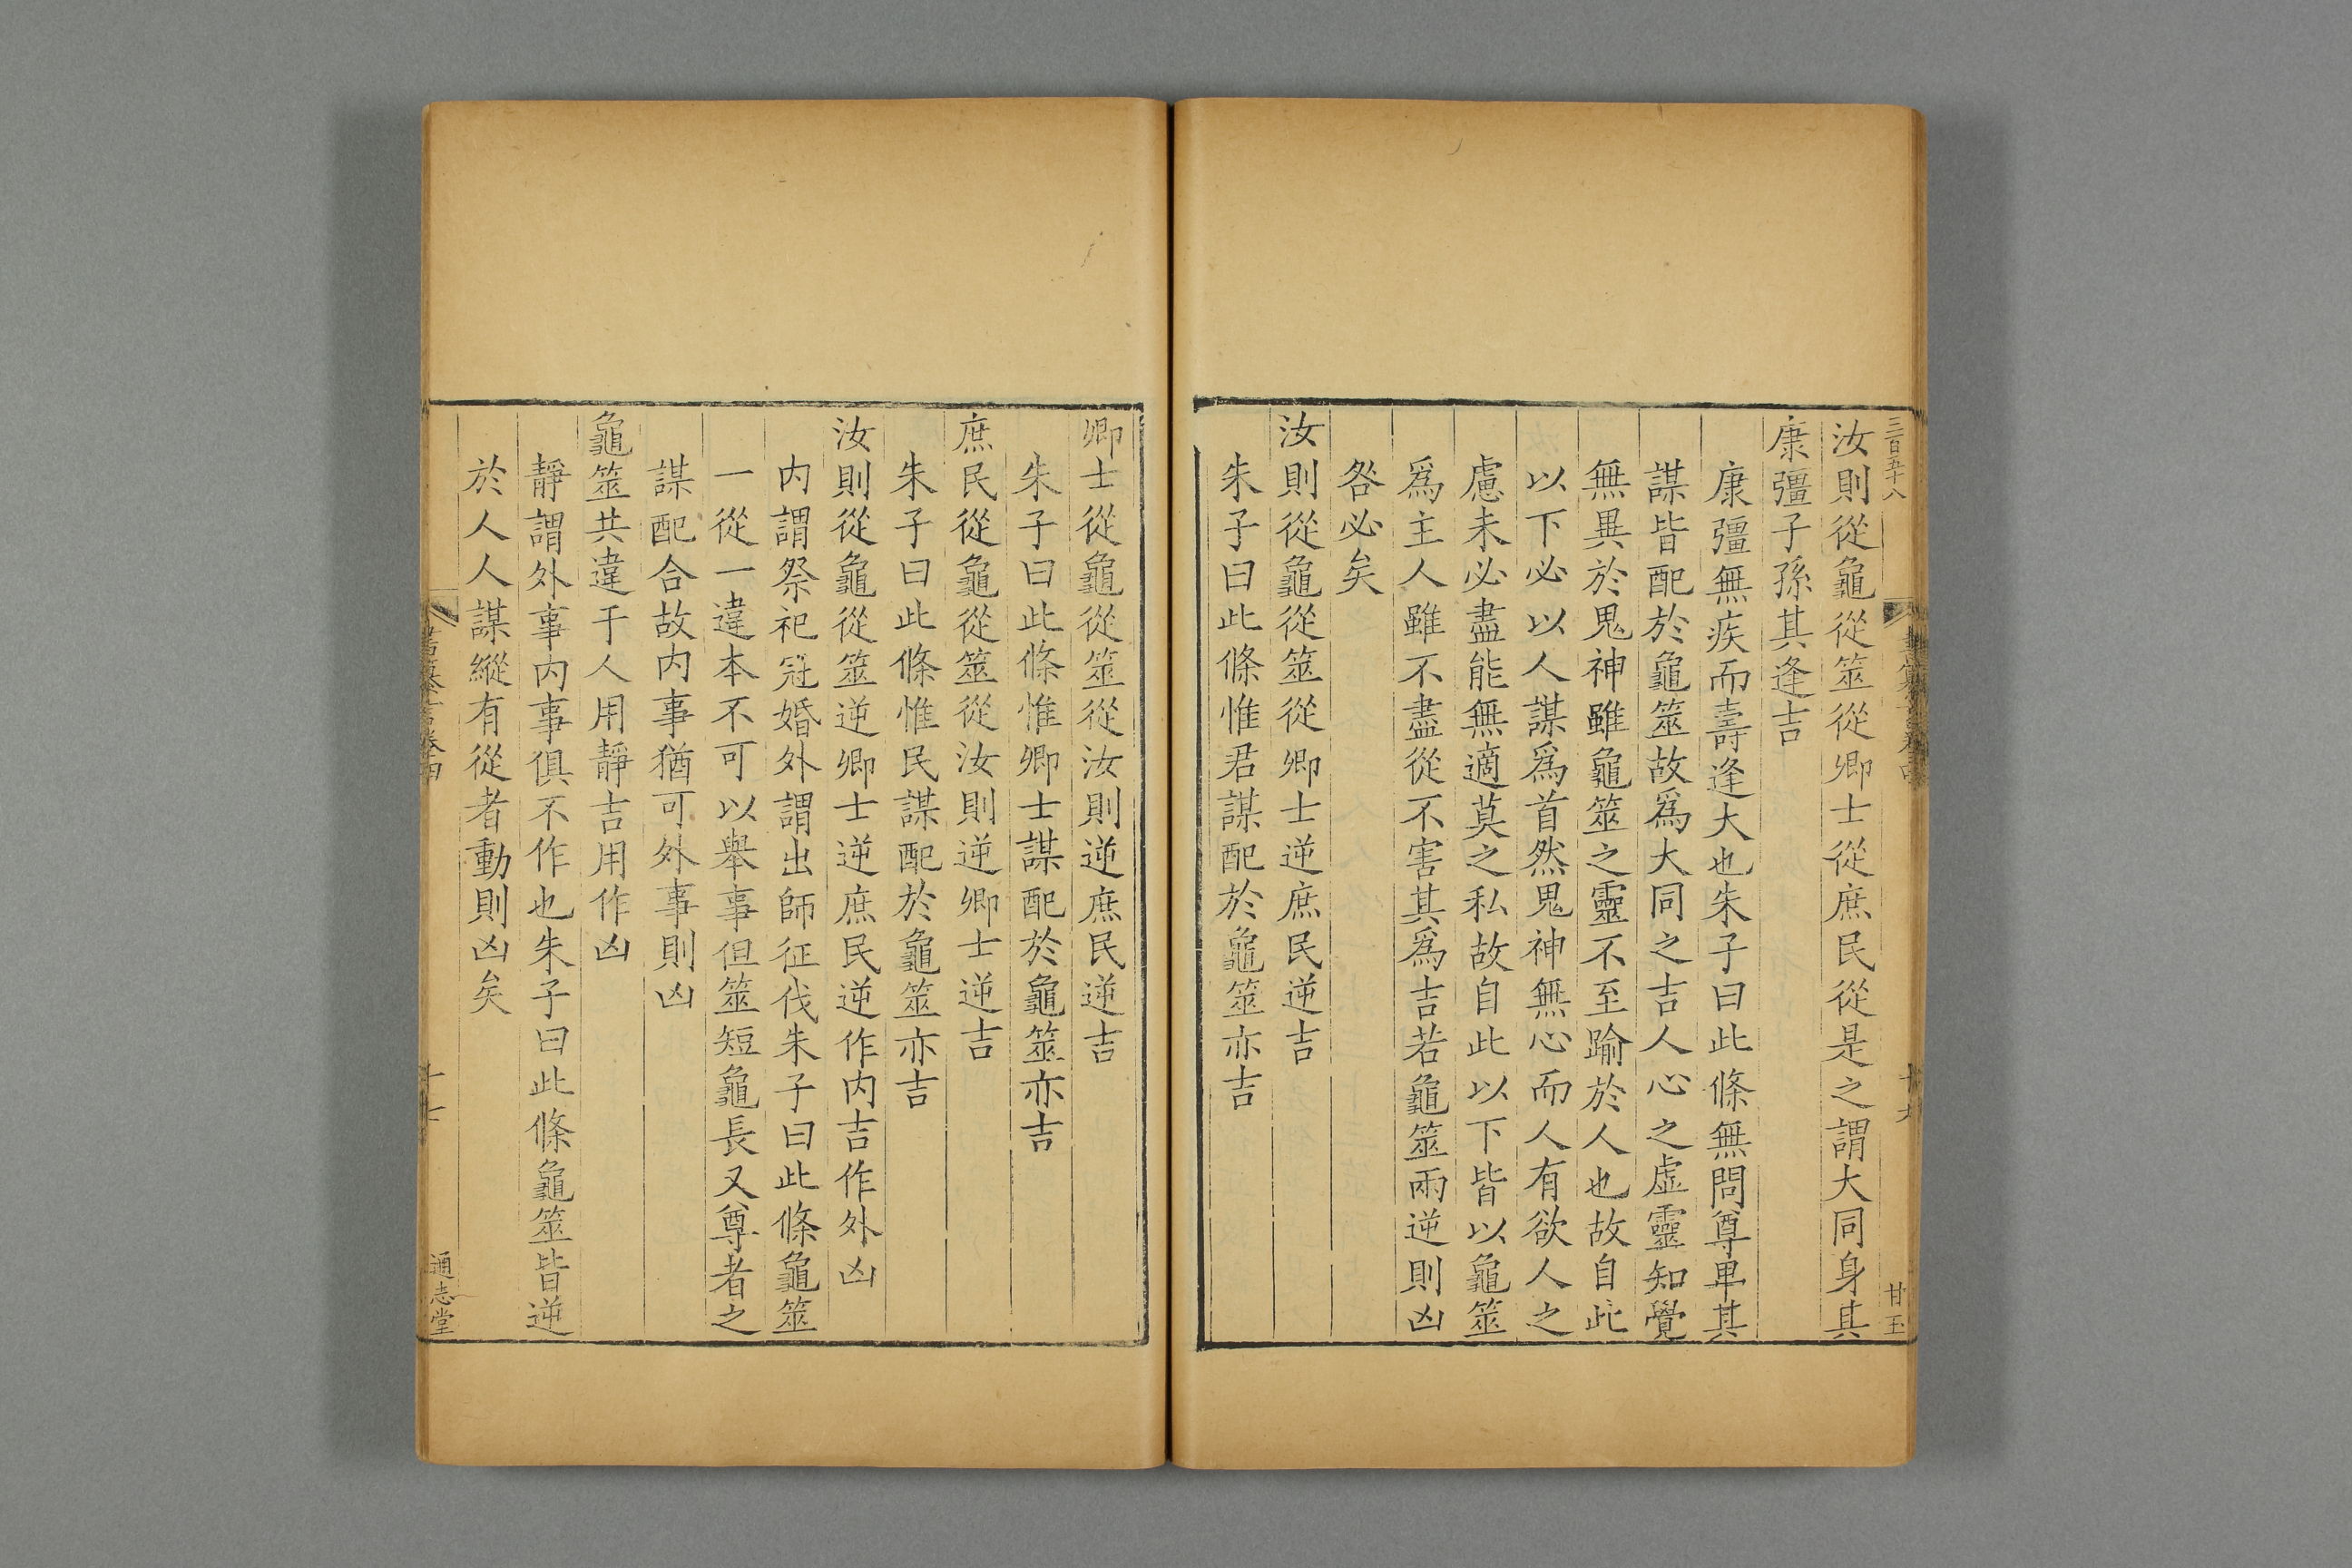 三百五十八
甘玉
汝則從龜從筮從卿士從庶民從是之謂大同身其
康彊子孫其逢吉
康彊無疾而壽逢大也朱子曰此條無問尊卑其
謀皆配於龜筮故爲大同之吉人心之虛靈知覺
無異於鬼神雖龜筮之靈不至踰於人也故自此
以下必以人謀爲首然鬼神無心而人有欲人之
慮未必盡能無適莫之私故自此以下皆以龜筮
爲主人雖不盡從不害其爲吉若龜筮兩逆則凶
咎必矣
汝則從龜從筮從卿士逆庶民逆吉
朱子曰此條惟君謀配於龜筮亦吉
卿士從龜從筮從汝則逆庶民逆吉
朱子曰此條惟卿士謀配於龜筮亦吉
庶民從龜從筮從汝則逆卿士逆吉
朱子曰此條惟民謀配於龜筮亦吉
汝則從龜從筮逆卿士逆庶民逆作内吉作外凶
内謂祭祀冠婚外謂出師征伐朱子曰此條龜筮
一從一違本不可以舉事但筮短龜長又尊者之
謀配合故内事猶可外事則凶
龜筮共違于人用靜吉用作凶
靜謂外事内事俱不作也朱子曰此條龜筮皆逆
於人人謀縱有從者動則凶矣
通志堂